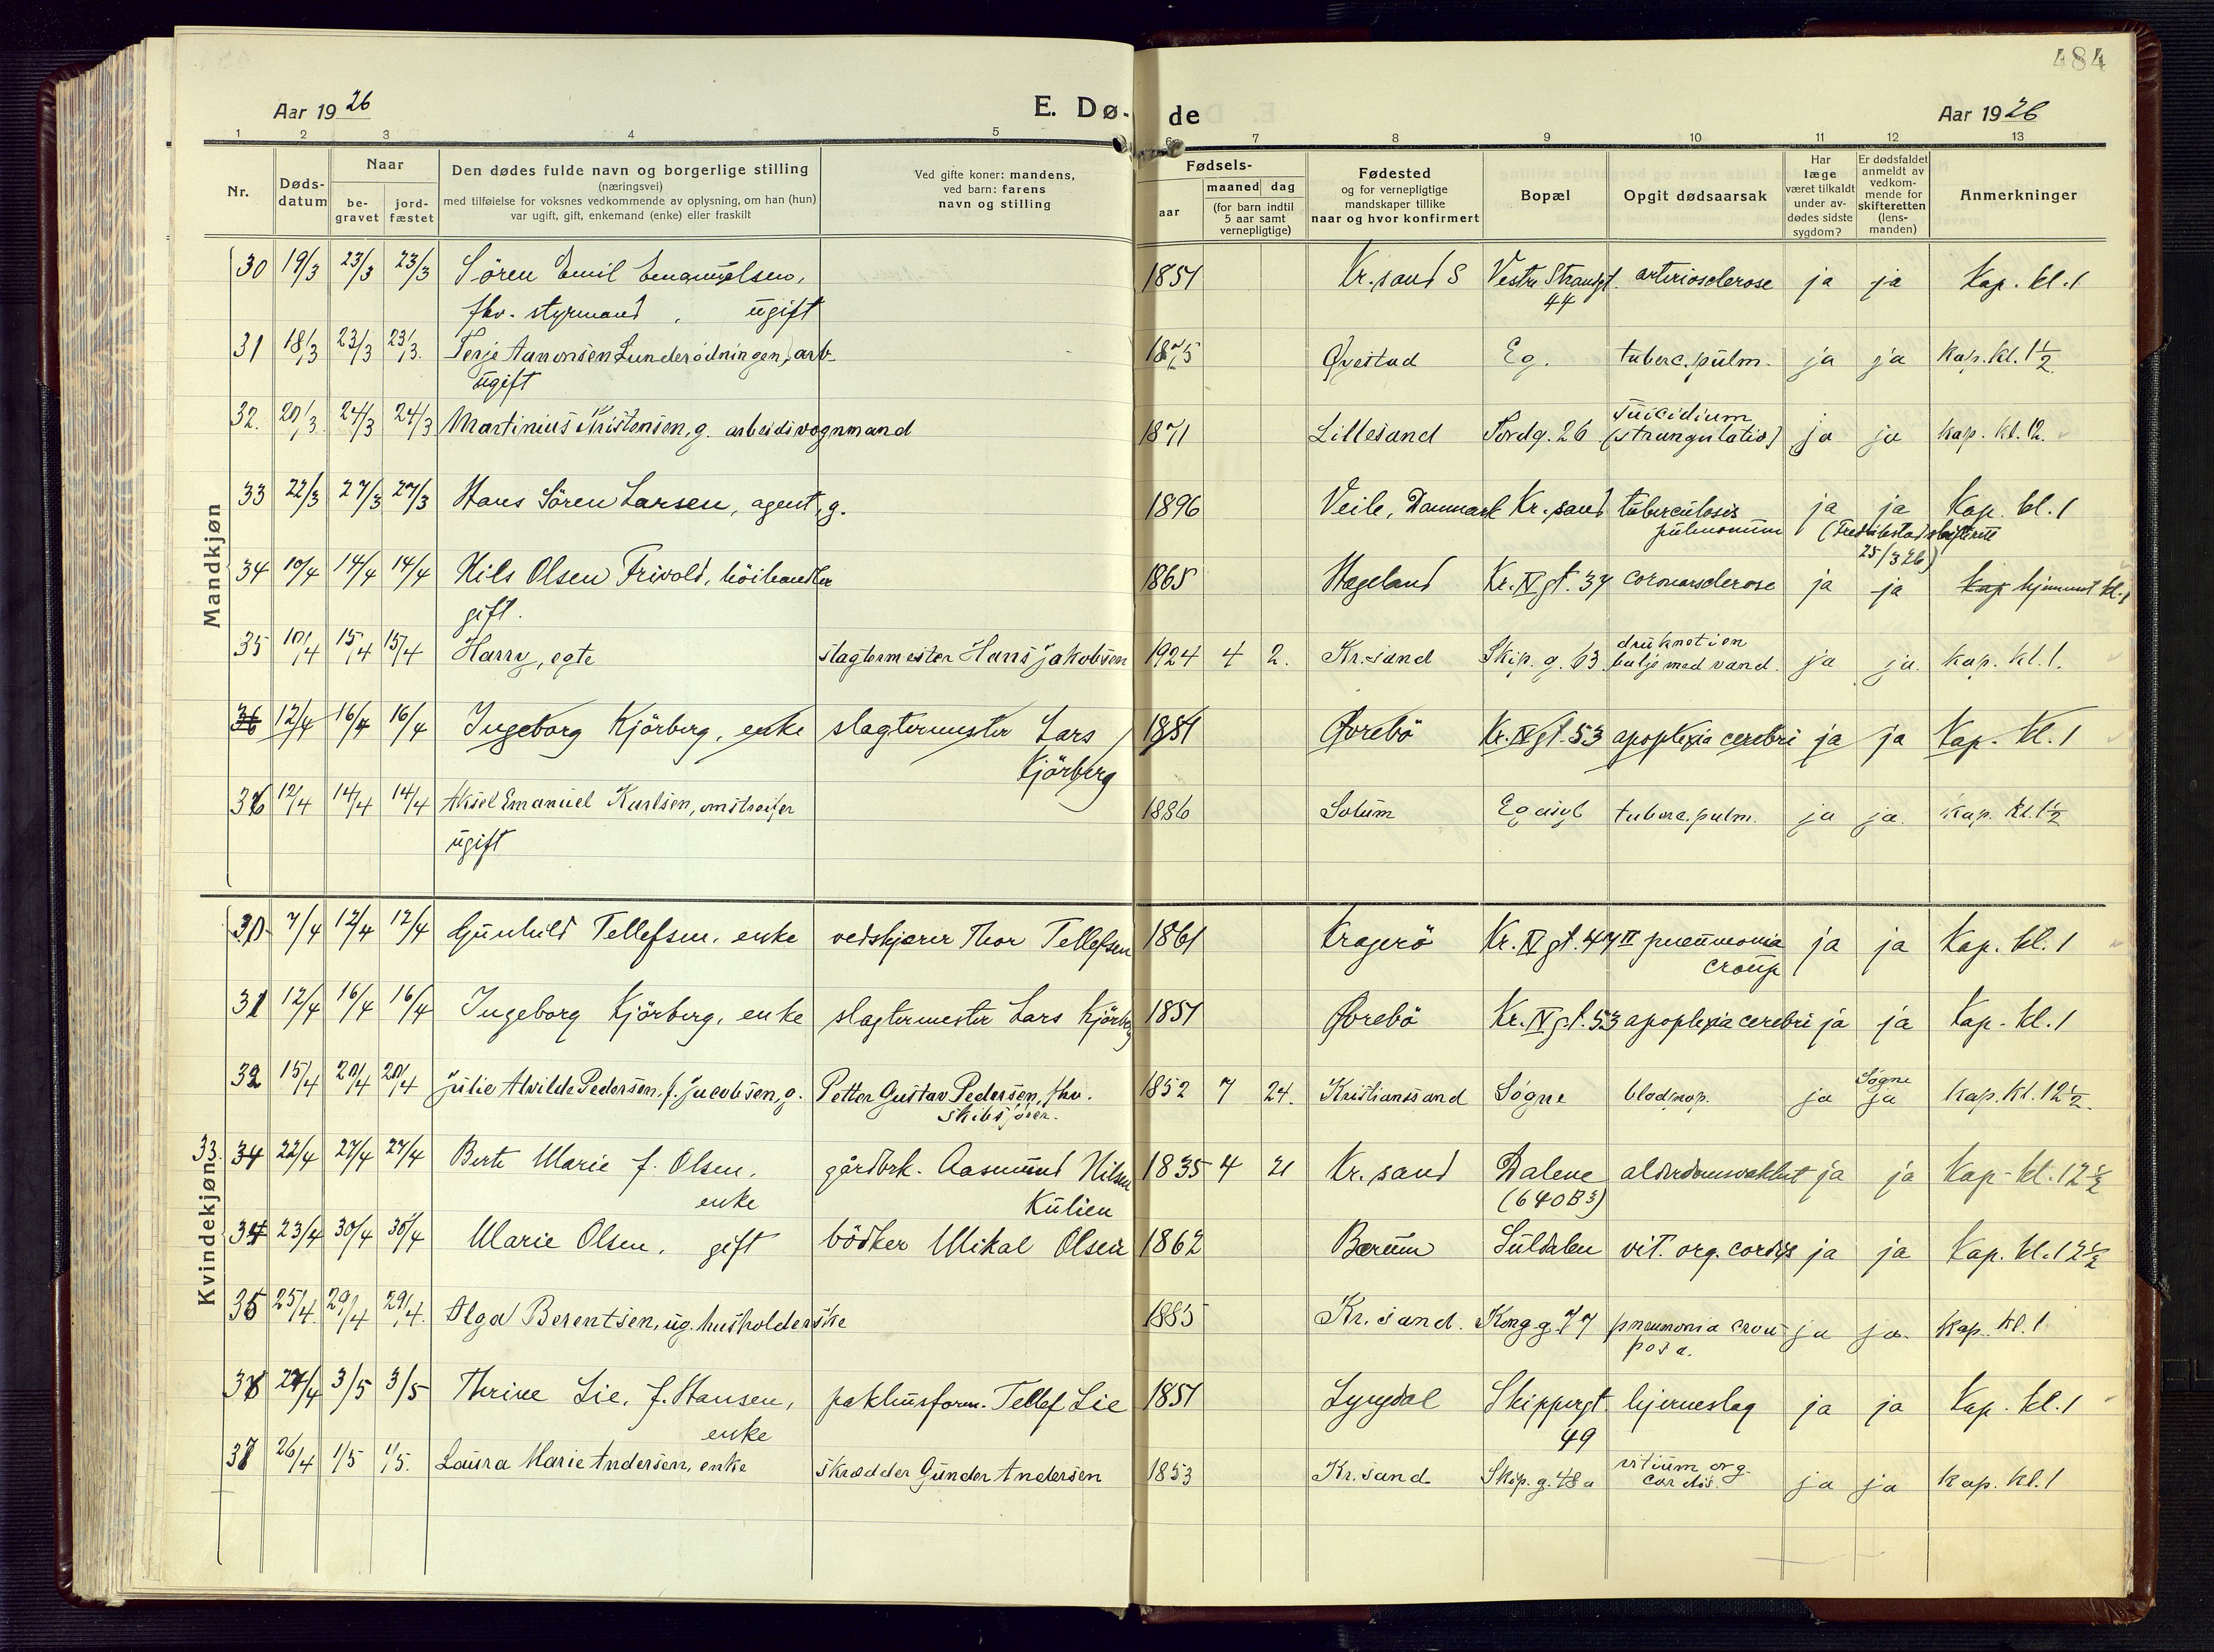 484
Aar 1926
E. Dø- de
Aar 1926
1 2 3 4 5 6 7 8 9 10 11 12 13
Nr.
Døds-
datum
Naar
be-
gravet
jord-
fæstet
Den dødes fulde navn og borgerlige stilling
(næringsvei)
med tilføielse for voksnes vedkommende av oplysning, om han (hun)
var ugift, gift, enkemand (enke) eller fraskilt
Ved gifte koner: mandens,
ved barn: farens
navn og stilling
Fødsels-
aar
maaned dag
(for barn indtil
5 aar samt
vernepligtige)
Fødested
og for vernepligtige
mandskaper tillike
naar og hvor konfirmert
Bopæl
Opgit dødsaarsak
Har
læge
været tilkaldt
under av-
dødes sidste
sygdom?
Er dødsfaldet
anmeldt av
vedkom-
mende for
skifteretten
(lens-
manden)
Anmerkninger
Mandkjøn
30 19/3 23/3 23/3 Sören Emil Emanuelsen, 1851 Kr.sand S Vestre Strandgt. arteriosclerose ja ja Kap. kl. 1
fhv. styrmand, ugift 44
31 18/3 23/3 23/3. Terje Aanonsen Lunderödningen, arb. 1875 Øyestad Eg. tuberc. pulm. ja ja Kap. kl. 1½
ugift
32. 20/3. 24/3 24/3 Martinius Kristensen, g. arbeidsvognmand 1871 Lillesand Tordg. 26 suicidium
(strangulatio) ja ja Kap. kl. 12.
33 22/3 27/3 27/3 Hans Sören Larsen, agent, g. 1896 Veile, Danmark Kr.sand tuberculosis ja ja Kap. kl. 1
pulmonum (Fredrikstad skifterett
25/3 26)
34 10/4 14/4 14/4 Nils Olsen Frivold, höihandler 1865 Hægeland Kr. IV gt. 37 coronarsclerose ja ja Kap hjemmet kl. 1
gift.
35 10/4 15/4 15/4 Harry, egte slagtermester Hans Jakobsen 1924 4 2. Kr.sand Skip. g. 63 druknet i en
balje med vand. ja ja. Kap. kl. 1.
36 12/4 16/4 16/4 Ingeborg Kjörberg, enke slagtermester Lars 1851 Øvrebö Kr. IV gt. 53 apoplexia cerebri ja ja Kap. kl. 1
Kjörberg
36 12/4 14/4 14/4 Aksel Emanuel Karlsen, omstreifer 1886 Solum Eg asyl tuberc. pulm. ja ja. Kap. kl. 1½
ugift
Kvindekjøn
30 7/4 12/4 12/4 Gunhild Tellefsen, enke vedskjærer Thor Tellefsen 1861 Kragerö Kr. IV gt. 47 II pneumonia ja ja Kap. kl. 1
croup
31 12/4 16/4 16/4 Ingeborg Kjörberg, enke slagtermester Lars Kjörberg 1851 Øvrebö Kr. IV gt. 53 apoplexia cerebri ja ja Kap. kl. 1
32 15/4 20/4 20/4 Julie Alvilde Pedersen, f. Jacobsen, g. Petter Gustav Pedersen, fhv. 1852 7 24. Kristianssand Søgne blodprop. ja Søgne
ja Kap. kl. 12½.
33. 34 22/4 27/4 27/4 Berte Marie f. Olsen, gårdbrk. Aasmund Nilsen 1835 4 21 Kr.sand Dalene alderdomssvakhet ja ja Kap. kl. 12½
enke Kulien (640 B3)
34 23/4 30/4 30/4 Marie Olsen, gift bödker Mikal Olsen 1862 Berum Suldalen vit. org. cordis ja ja Kap. kl. 12½
35 25/4. 29/4 29/4. Olga Berentsen, ug. husholderske 1885 Kr.sand. Kong. g. 77 pneumonia crou ja ja. Kap. kl. 1
posa.
36 27/4 3/5 3/5 Thrine Lie, f. Hansen, pakhusform. Tellef Lie 1851 Lyngdal Skippergt. hjerneslag ja ja Kap. kl. 1
enke 49
37 26/4 1/5 1/5. Laura Marie Andersen, enke skrædder Gunder Andersen 1853 Kr.sand Skip. g. 48 a vitium org.
cordis. ja ja Kap. kl. 1